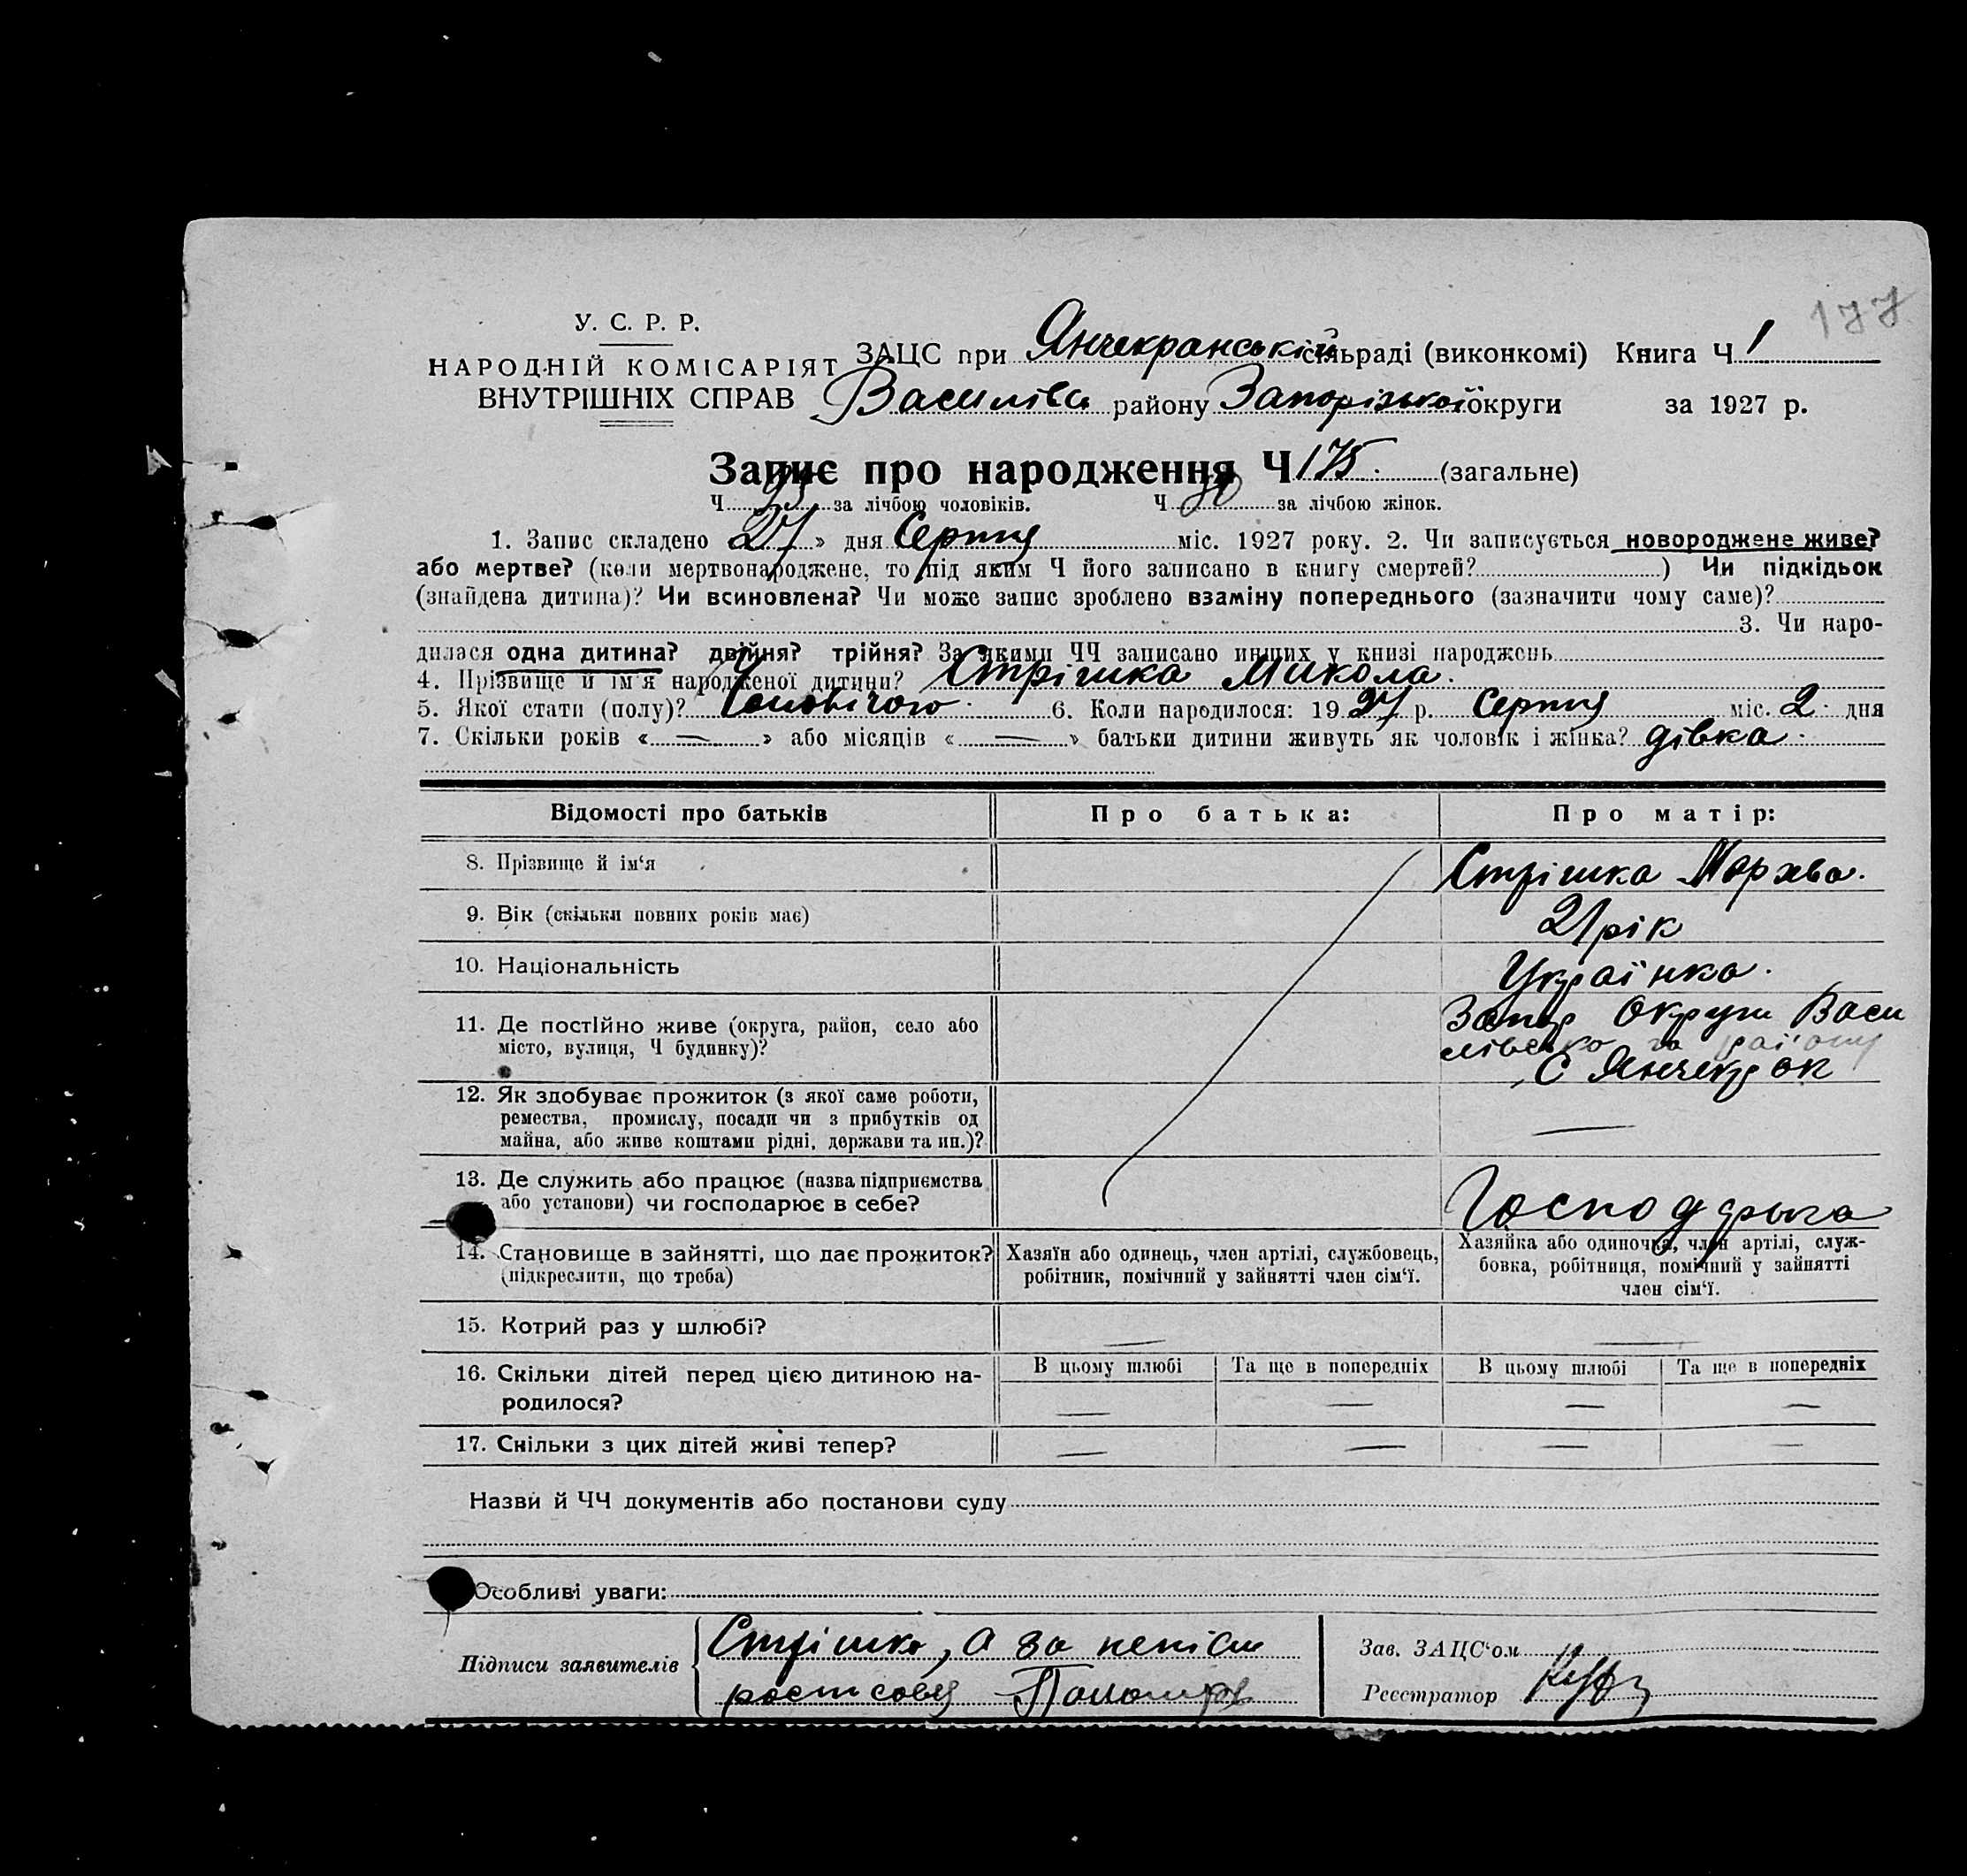 177
У. С. Р. Р.
НАРОДНІЙ КОМІСАРІЯТ
ВНУТРІШНІХ СПРАВ
ЗАЦС при Янчекранській сільраді (виконкомі) Книга Ч 1
Василівс району Запорізької округи за 1927 р.
Запис про народження Ч 175. (загальне)
Ч за лічбою чоловіків. Ч за лічбою жінок.
1. Запис складено 27 » дня Серпня міс. 1927 року. 2. Чи записується новороджене живе?
або мертве? (коли мертвонароджене, то під яким Ч його записано в книгу смертей? ) Чи підкідьок
(знайдена дитина)? Чи всиновлена? Чи може запис зроблено взаміну попереднього (зазначити чому саме)?
3. Чи наро-
дилася одна дитина? двійня? трійня? За якими ЧЧ записано инших у книзі народжень
4. Прізвище й ім'я народженої дитини? Стрішка Микола.
5. Якої статі (полу)? Чоловічого. 6. Коли народилося: 1927 р. Серпня міс. 2. дня
7. Скільки років « — » або місяців « — » батьки дитини живуть як чоловік і жінка? дівка.
Відомості про батьків Про батька: Про матір:
8. Прізвище й ім‘я Стрішка Мархва.
9. Вік (скільки повних років має) 21 рік
10. Національність Українка.
11. Де постійно живе (округа, район, село або
місто, вулиця, Ч будинку)?
Запор Округи Васи
лівсько го району
С Янчекрак
12. Як здобуває прожиток (з якої саме роботи,
ремества, промислу, посади чи з прибутків од
майна, або живе коштами рідні, держави та ин.)? —
13. Де служить або працює (назва підприємства
або установи) чи господарює в себе?
14. Становище в зайнятті, що дає прожиток?
(підкреслити, що треба)
Хазяїн або одинець, член артілі, службовець,
робітник, помічний у зайнятті член сім‘ї.
Хазяйка або одиночка, член артілі, служ-
бовка, робітниця, помічний у зайнятті
член сім‘ї.
15. Котрий раз у шлюбі? — —
16. Скільки дітей перед цією дитиною на-
родилося?
В цьому шлюбі Та ще в попередніх В цьому шлюбі Та ще в попередніх
— — — —
17. Скільки з цих дітей живі тепер? — — — —
Назви й ЧЧ документів або постанови суду
Особливі уваги:
Підписи заявителів
Стрішка, а за непісм
Зав. ЗАЦС‘ом
Реєстратор